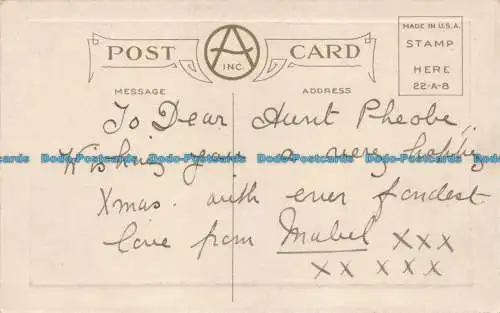 MADE IN U.S.A.
STAMP
HERE
22-A-8
POST A INC. CARD
MESSAGE ADDRESS
To Dear Aunt Pheobe,
Wishing you a very happy
Xmas. with ever fondest
love from Mabel XXX
XX XXX
Dodo-Postcards Dodo-Postcards Dodo-Postcards Dodo-Postcards